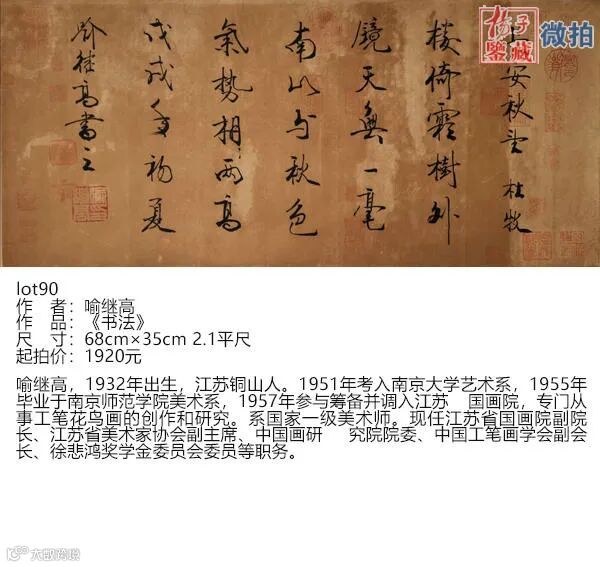 揚子鑒藏 微拍
长安秋望 杜牧
樓倚霜樹外
鏡天無一毫
南山与秋色
氣勢相两高
戊戌年初夏
喻继高書之
lot90
作 者：喻继高
作 品：《书法》
尺 寸：68cm×35cm 2.1平尺
起拍价：1920元
喻继高，1932年出生，江苏铜山人。1951年考入南京大学艺术系，1955年
毕业于南京师范学院美术系，1957年参与筹备并调入江苏 国画院，专门从
事工笔花鸟画的创作和研究。系国家一级美术师。现任江苏省国画院副院
长、江苏省美术家协会副主席、中国画研 究院院委、中国工笔画学会副会
长、徐悲鸿奖学金委员会委员等职务。
大数跨境